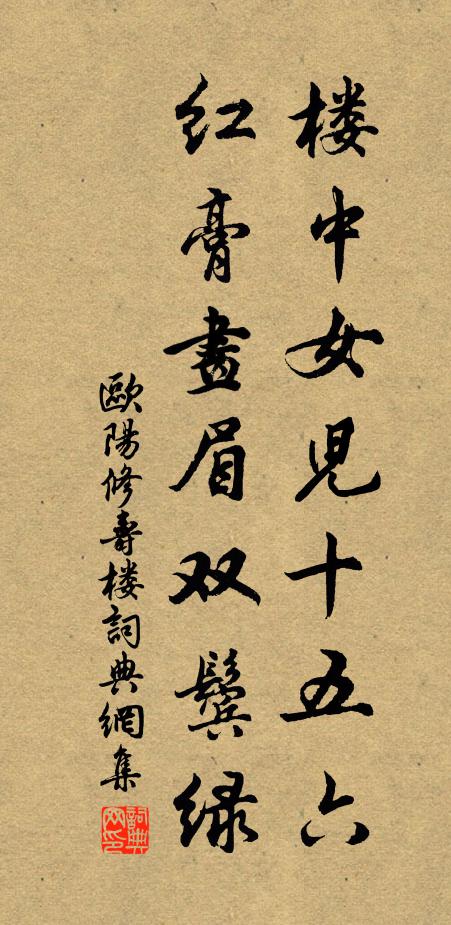 楼中女児十五六
紅膏畫眉双鬓緑
歐陽修壽楼詞典網集
詞典網印